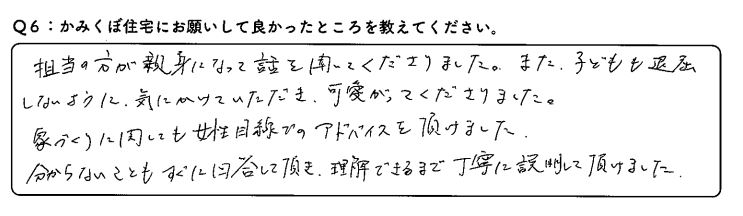 Q6：かみくぼ住宅にお願いして良かったところを教えてください。
担当の方が親身になって話を聞いてくださりました。また、子どもも退屈
しないように、気にかけていただき、可愛がってくださりました。
家づくりに関しても女性目線でのアドバイスを頂けました.
分からないこともすぐに回答して頂き、理解できるまで丁寧に説明して頂けました.